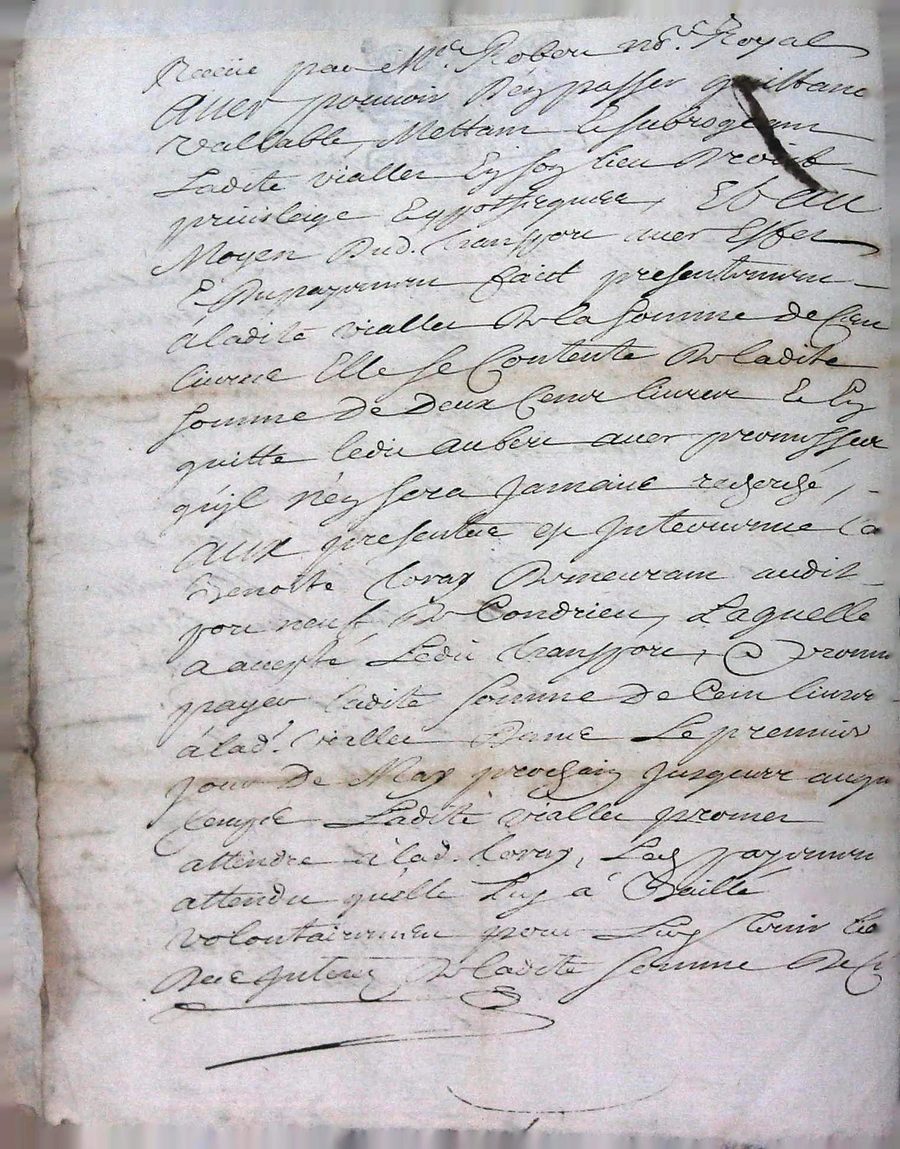 Receüe par Me. Robert nore. Royal
avec pouvoir d'en passer quittanc
vallable, Mettant et subrogeant
Ladite viallet En son lieu Droict
privileige hypotheques, Et au
Moyen Dud. transport avec Effet
Et Du payement faict presentement
a ladite viallet De la somme de Cent
livres Elle se Contente De ladite
somme De Deux Cents livres Et En
quitte ledit aubert avec promesse
qu'jl n'en sera jamais recherché,
aux presentes est jntervenue
benoite Coray Demeurant audit
port neuf De Condrieu, Laquelle
a accepté Ledit transport, & promis
payer ladite somme De Cent livres
à lad. viallet Dans Le premier
jour De May prochain jusques auquel
temps Ladite viallet promet
attendre à lad. Coray, Led. payement
attendu qu'elle Luy à Baillé
volontairement pour Luy tenir lieu
Des jnterets De ladite somme De